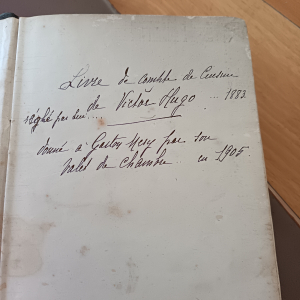 Livre de compte de Cuisine
de Victor Hugo ... 1883.
réglé par lui....
donné à Gaston Mery par son
valet de chambre en 1905.